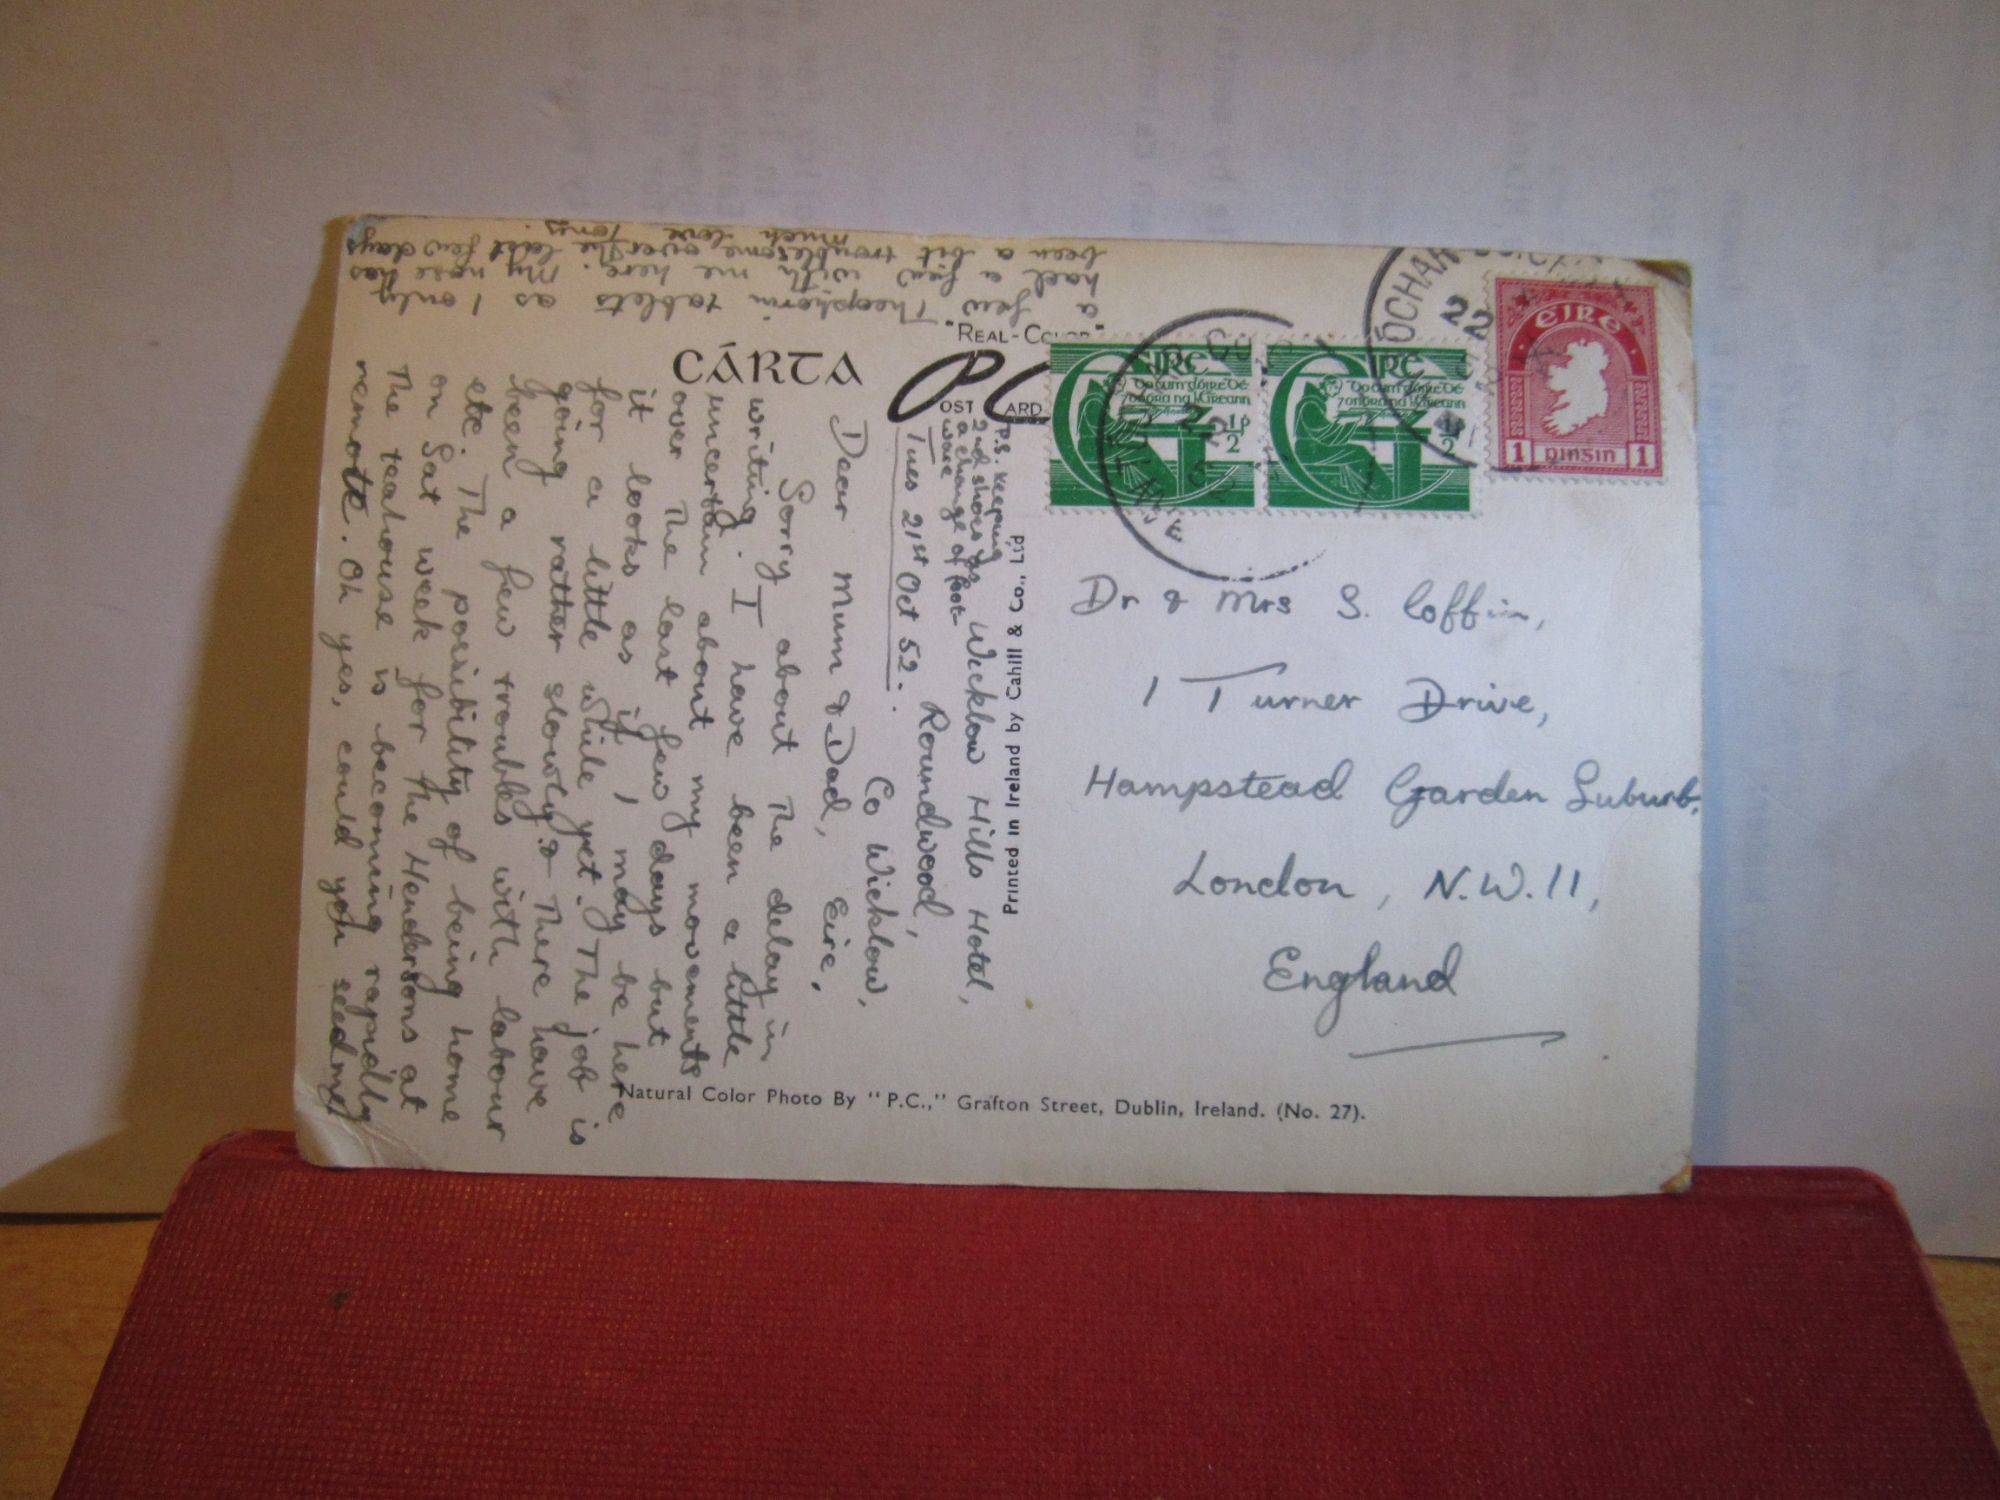 "REAL-COLOR"
CÁRTA
POST CARD
P.S. Keeping
2nd shoes as
a change of foot-
ware
Wicklow Hills Hotel,
Roundwood,
Co Wicklow,
Eire.
Tues 21st Oct 52.
Dear Mum & Dad,
Sorry about the delay in
writing. I have been a little
uncertain about my movements
over the last few days but
it looks as if I may be here
for a little while yet. The job is
going rather slowly & There have
been a few troubles with labour
etc. The possibility of being home
on Sat week for the Hendersons at
The teahouse is becoming rapidly
remote. Oh yes, could you send me
a few Theophorin tablets as I only
had a few with me here. My nose has
been a bit troublesome over the last few days
Much love Tony.
Printed in Ireland by Cahill & Co., Ltd
Natural Color Photo By "P.C.," Grafton Street, Dublin, Ireland. (No. 27).
EIRE
EIRE
1/2 p
1/2
22
52
22
EIRE
1 pinsin 1
Dr & Mrs S. Coffin,
1 Turner Drive,
Hampstead Garden Suburb,
London, N.W.11,
England